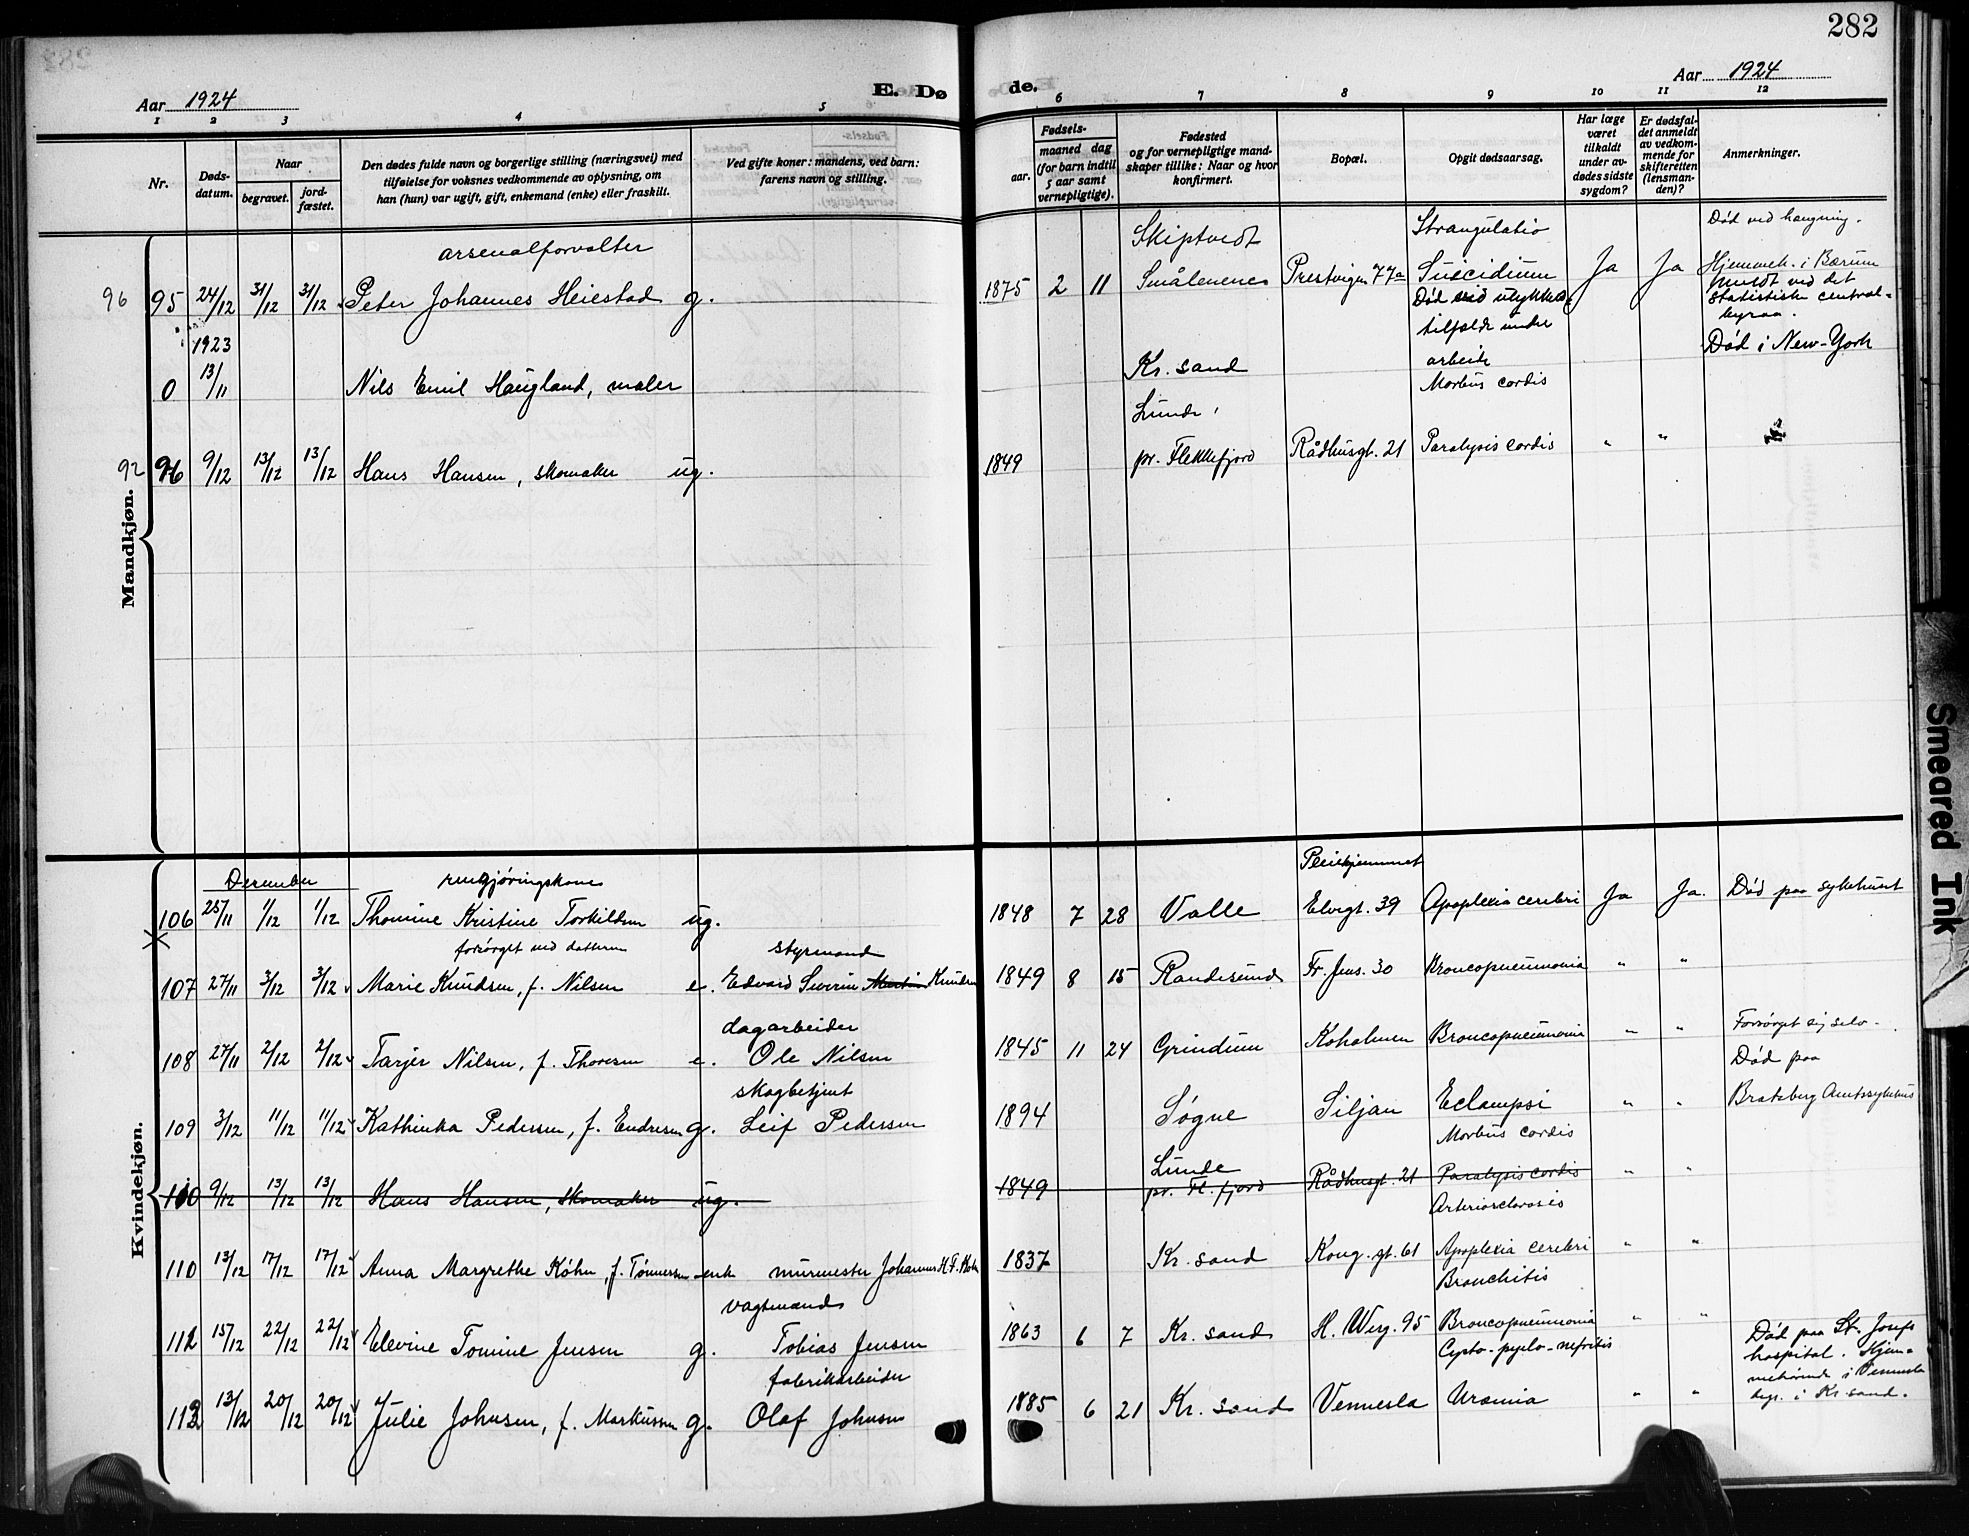 282
Aar 1924
E. Dø
de.
Aar 1924
1 2 3 4 5 6 7 8 9 10 11 12
Nr.
Døds-
datum.
Naar
begravet.
jord-
fæstet.
Den dødes fulde navn og borgerlige stilling (næringsvei) med
tilføielse for voksnes vedkommende av oplysning, om
han (hun) var ugift, gift, enkemand (enke) eller fraskilt.
Ved gifte koner: mandens, ved barn:
farens navn og stilling.
Fødsels-
aar.
maaned dag
(for barn indtil
5 aar samt
vernepligtige).
Fødested
og for vernepligtige mand-
skaper tillike: Naar og hvor
konfirmert.
Bopæl.
Opgit dødsaarsag.
Har læge
været
tilkaldt
under av-
dødes sidste
sygdom?
Er dødsfal-
det anmeldt
av vedkom-
mende for
skifteretten
(lensman-
den)?
Anmerkninger.
Mandkjøn.
arsenalforvalter
96 95 24/12 31/12 31/12 Peter Johannes Heiestad g.
1875 2 11
Skiptvedt
Smålenenes
Prestvigen 77a
Strangulatio
Suicidium
Ja Ja
Død ved hængning.
Hjemmeh. i Bærum
meldt ved det
statistiske central-
byraa.
1923
0 13/11 Nils Emil Haugland, maler
Kr. sand
Død ved ulykkes-
tilfælde under
arbeide
Død i New-York
92 96 9/12 13/12 13/12 Hans Hansen, skomaker ug.
1849
Lunde,
pr. Flekkefjord
Rådhusgt. 21
Morbus cordis
Paralysis cordis
" "
Kvindekjøn.
December
rengjøringskone
106 25/11 1/12 1/12 Thomine Kristine Torkildsen ug.
1848 7 28 Valle
Pleiehjemmet
Elvegt. 39
Apoplexia cerebri Ja Ja. Død paa sykehuset
X
forsørget ved datteren
107 27/11 3/12 3/12 Marie Knudsen, f. Nilsen e.
styrmand
Edvard Severin Martin Knudsen
1849 8 15 Randesund Fr. Jens. 30 Broncopneumonia " "
108 27/11 2/12 2/12 Tarjer Nilsen, f. Thoresen e.
dagarbeider
Ole Nilsen
1845 11 24 Grindum Koholmen Broncopneumonia " "
Forsørget sig selv.
109 3/12 11/12 11/12 Kathinka Pedersen, f. Endresen g.
skogbetjent
Leif Pedersen
1894 Søgne Siljan Eclampsi " "
Død paa
Bratsberg Amtssykehus
110 9/12 13/12 13/12 Hans Hansen, skomaker ug.
1849
Lunde
pr. Fl. fjord
Rådhusgt. 21
Morbus cordis
Paralysis cordis
" "
110 13/12 17/12 17/12 Anna Margrethe Køhn, f. Tønnesen enk
murmester Johannes H. F. Køhn
1837 Kr. sand Kong. gt. 61
Arteriosclerosis
Apoplexia cerebri
" "
112 15/12 22/12 22/12 Elevine Tomine Jensen g.
vagtmand
Tobias Jensen
1863 6 7 Kr. sand H. Werg. 95
Bronchitis
Broncopneumonia
" "
113 13/12 20/12 20/12 Julie Johnsen, f. Markussen g.
fabrikarbeider
Olaf Johnsen
1885 6 21 Kr. sand Vennesla
Cysto-pyelo-nefritis
Uræmia
" "
Død paa St. Josefs
hospital. Hjem-
mehørende i Vennesla
begr. i Kr. sand.
Smeared Ink